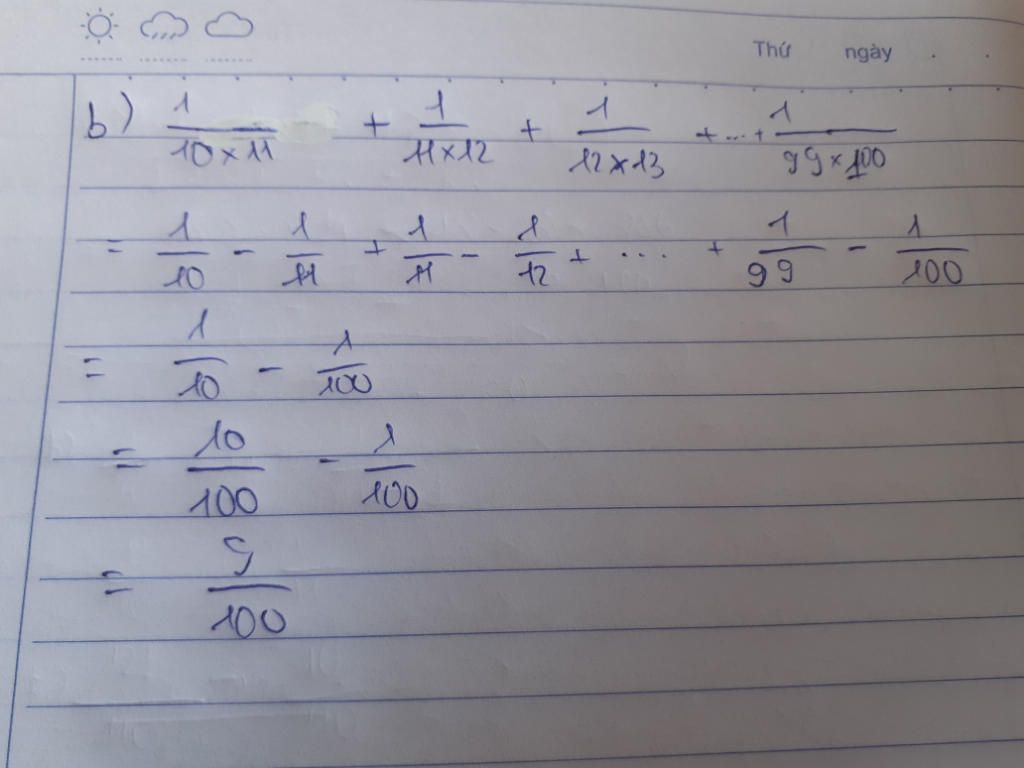 Thứ ngày . .
b) 1/(10×11) + 1/(11×12) + 1/(12×13) + ... + 1/(99×100)
= 1/10 - 1/11 + 1/11 - 1/12 + ... + 1/99 - 1/100
= 1/10 - 1/100
= 10/100 - 1/100
= 9/100